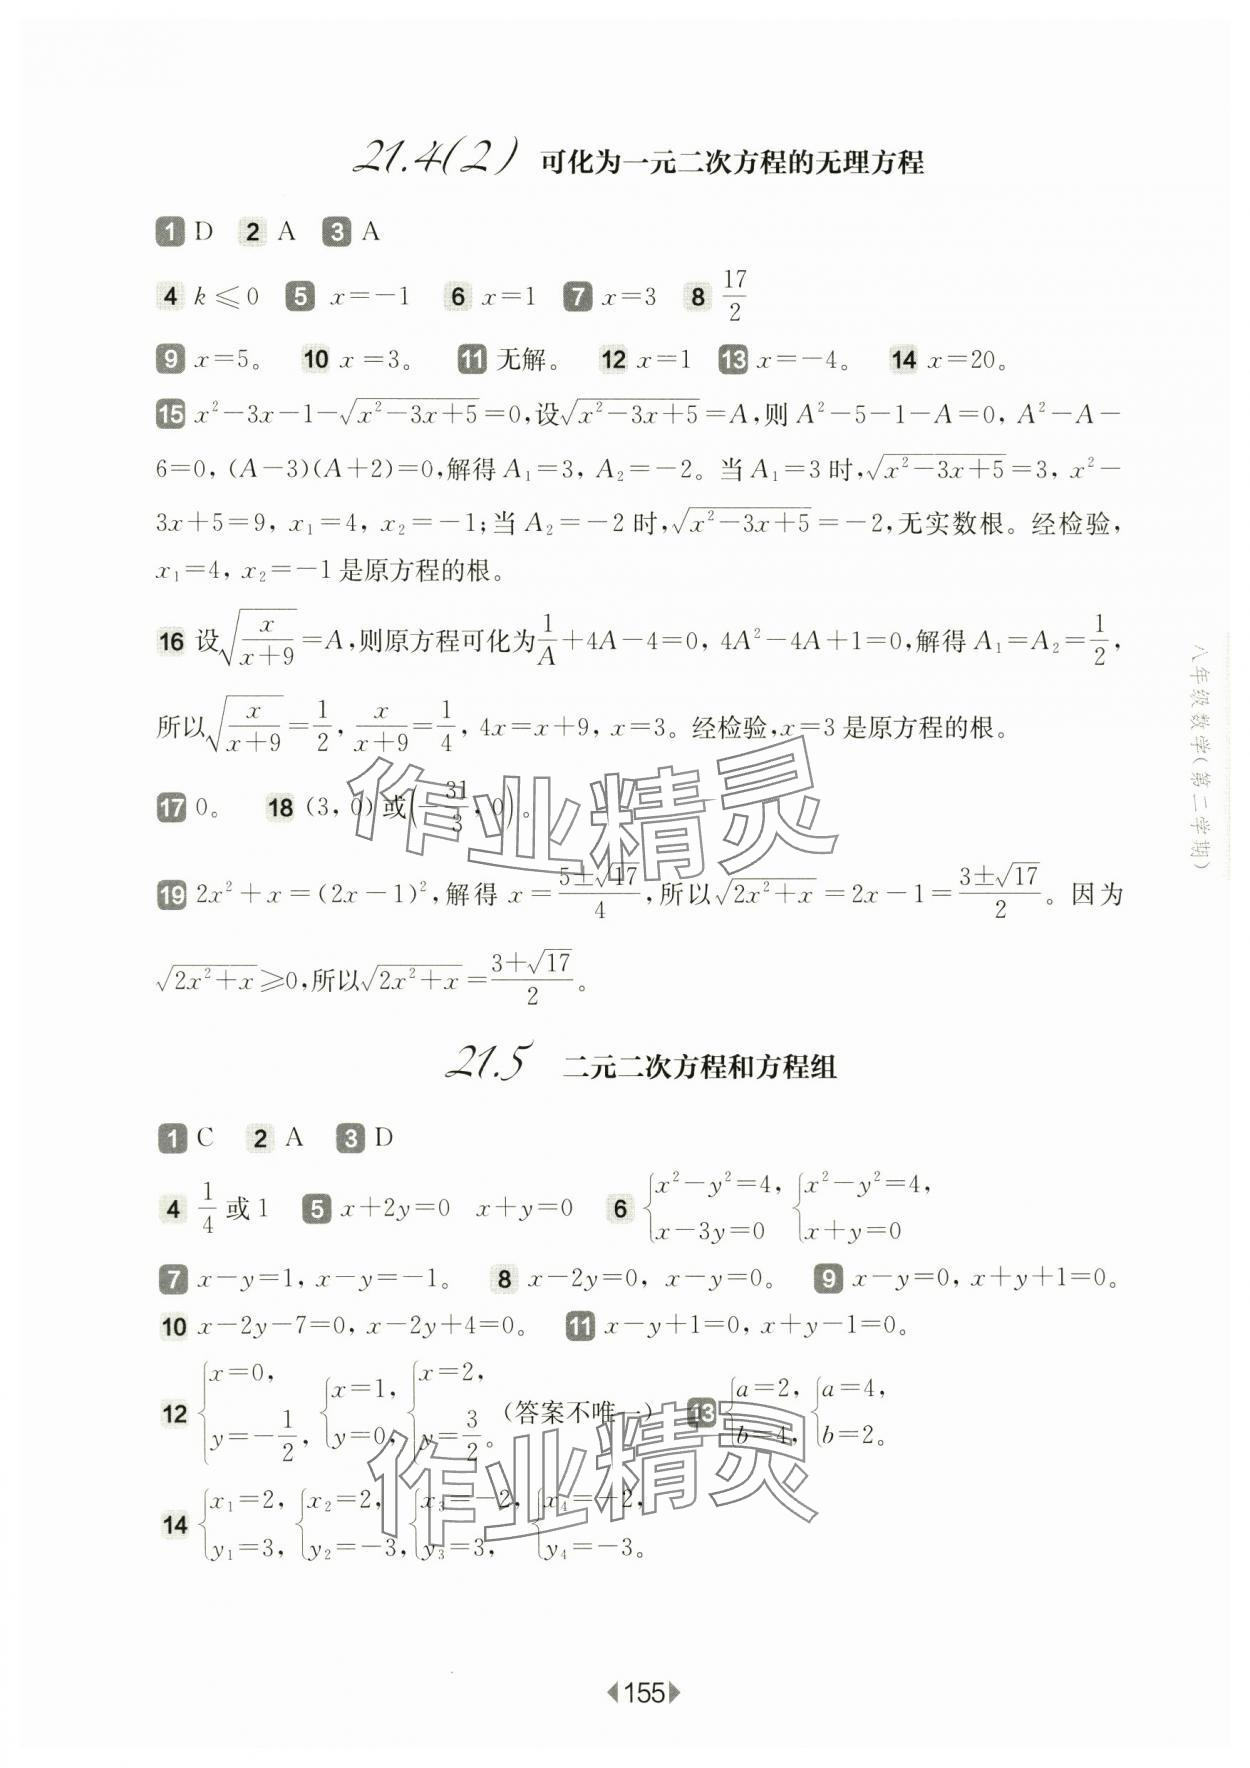 21.4(2) 可化为一元二次方程的无理方程
1 D 2 A 3 A
4 k≤0 5 x=-1 6 x=1 7 x=3 8 17/2
9 x=5。 10 x=3。 11 无解。 12 x=1 13 x=-4。 14 x=20。
15 x²-3x-1-√(x²-3x+5)=0,设√(x²-3x+5)=A,则 A²-5-1-A=0, A²-A-
6=0, (A-3)(A+2)=0,解得 A₁=3, A₂=-2。当 A₁=3 时,√(x²-3x+5)=3, x²-
3x+5=9, x₁=4, x₂=-1;当 A₂=-2 时,√(x²-3x+5)=-2,无实数根。经检验,
x₁=4, x₂=-1 是原方程的根。
16 设√(x/(x+9))=A,则原方程可化为1/A+4A-4=0, 4A²-4A+1=0,解得 A₁=A₂=1/2,
所以√(x/(x+9))=1/2, x/(x+9)=1/4, 4x=x+9, x=3。经检验,x=3 是原方程的根。
17 0。 18 (3, 0) 或(-31/3, 0)。
19 2x²+x=(2x-1)²,解得 x=(5±√17)/4,所以√(2x²+x)=2x-1=(3±√17)/2。因为
√(2x²+x)≥0,所以√(2x²+x)=(3+√17)/2。
21.5 二元二次方程和方程组
1 C 2 A 3 D
4 1/4 或 1 5 x+2y=0 x+y=0 6 {x²-y²=4, x-3y=0 {x²-y²=4, x+y=0
7 x-y=1, x-y=-1。 8 x-2y=0, x-y=0。 9 x-y=0, x+y+1=0。
10 x-2y-7=0, x-2y+4=0。 11 x-y+1=0, x+y-1=0。
12 {x=0, y=-1/2, {x=1, y=0, {x=2, y=3/2。 (答案不唯一) 13 {a=2, b=4, {a=4, b=2。
14 {x₁=2, y₁=3, {x₂=2, y₂=-3, {x₃=-2, y₃=3, {x₄=-2, y₄=-3。
155
八年级数学(第二学期)
作业精灵
作业精灵